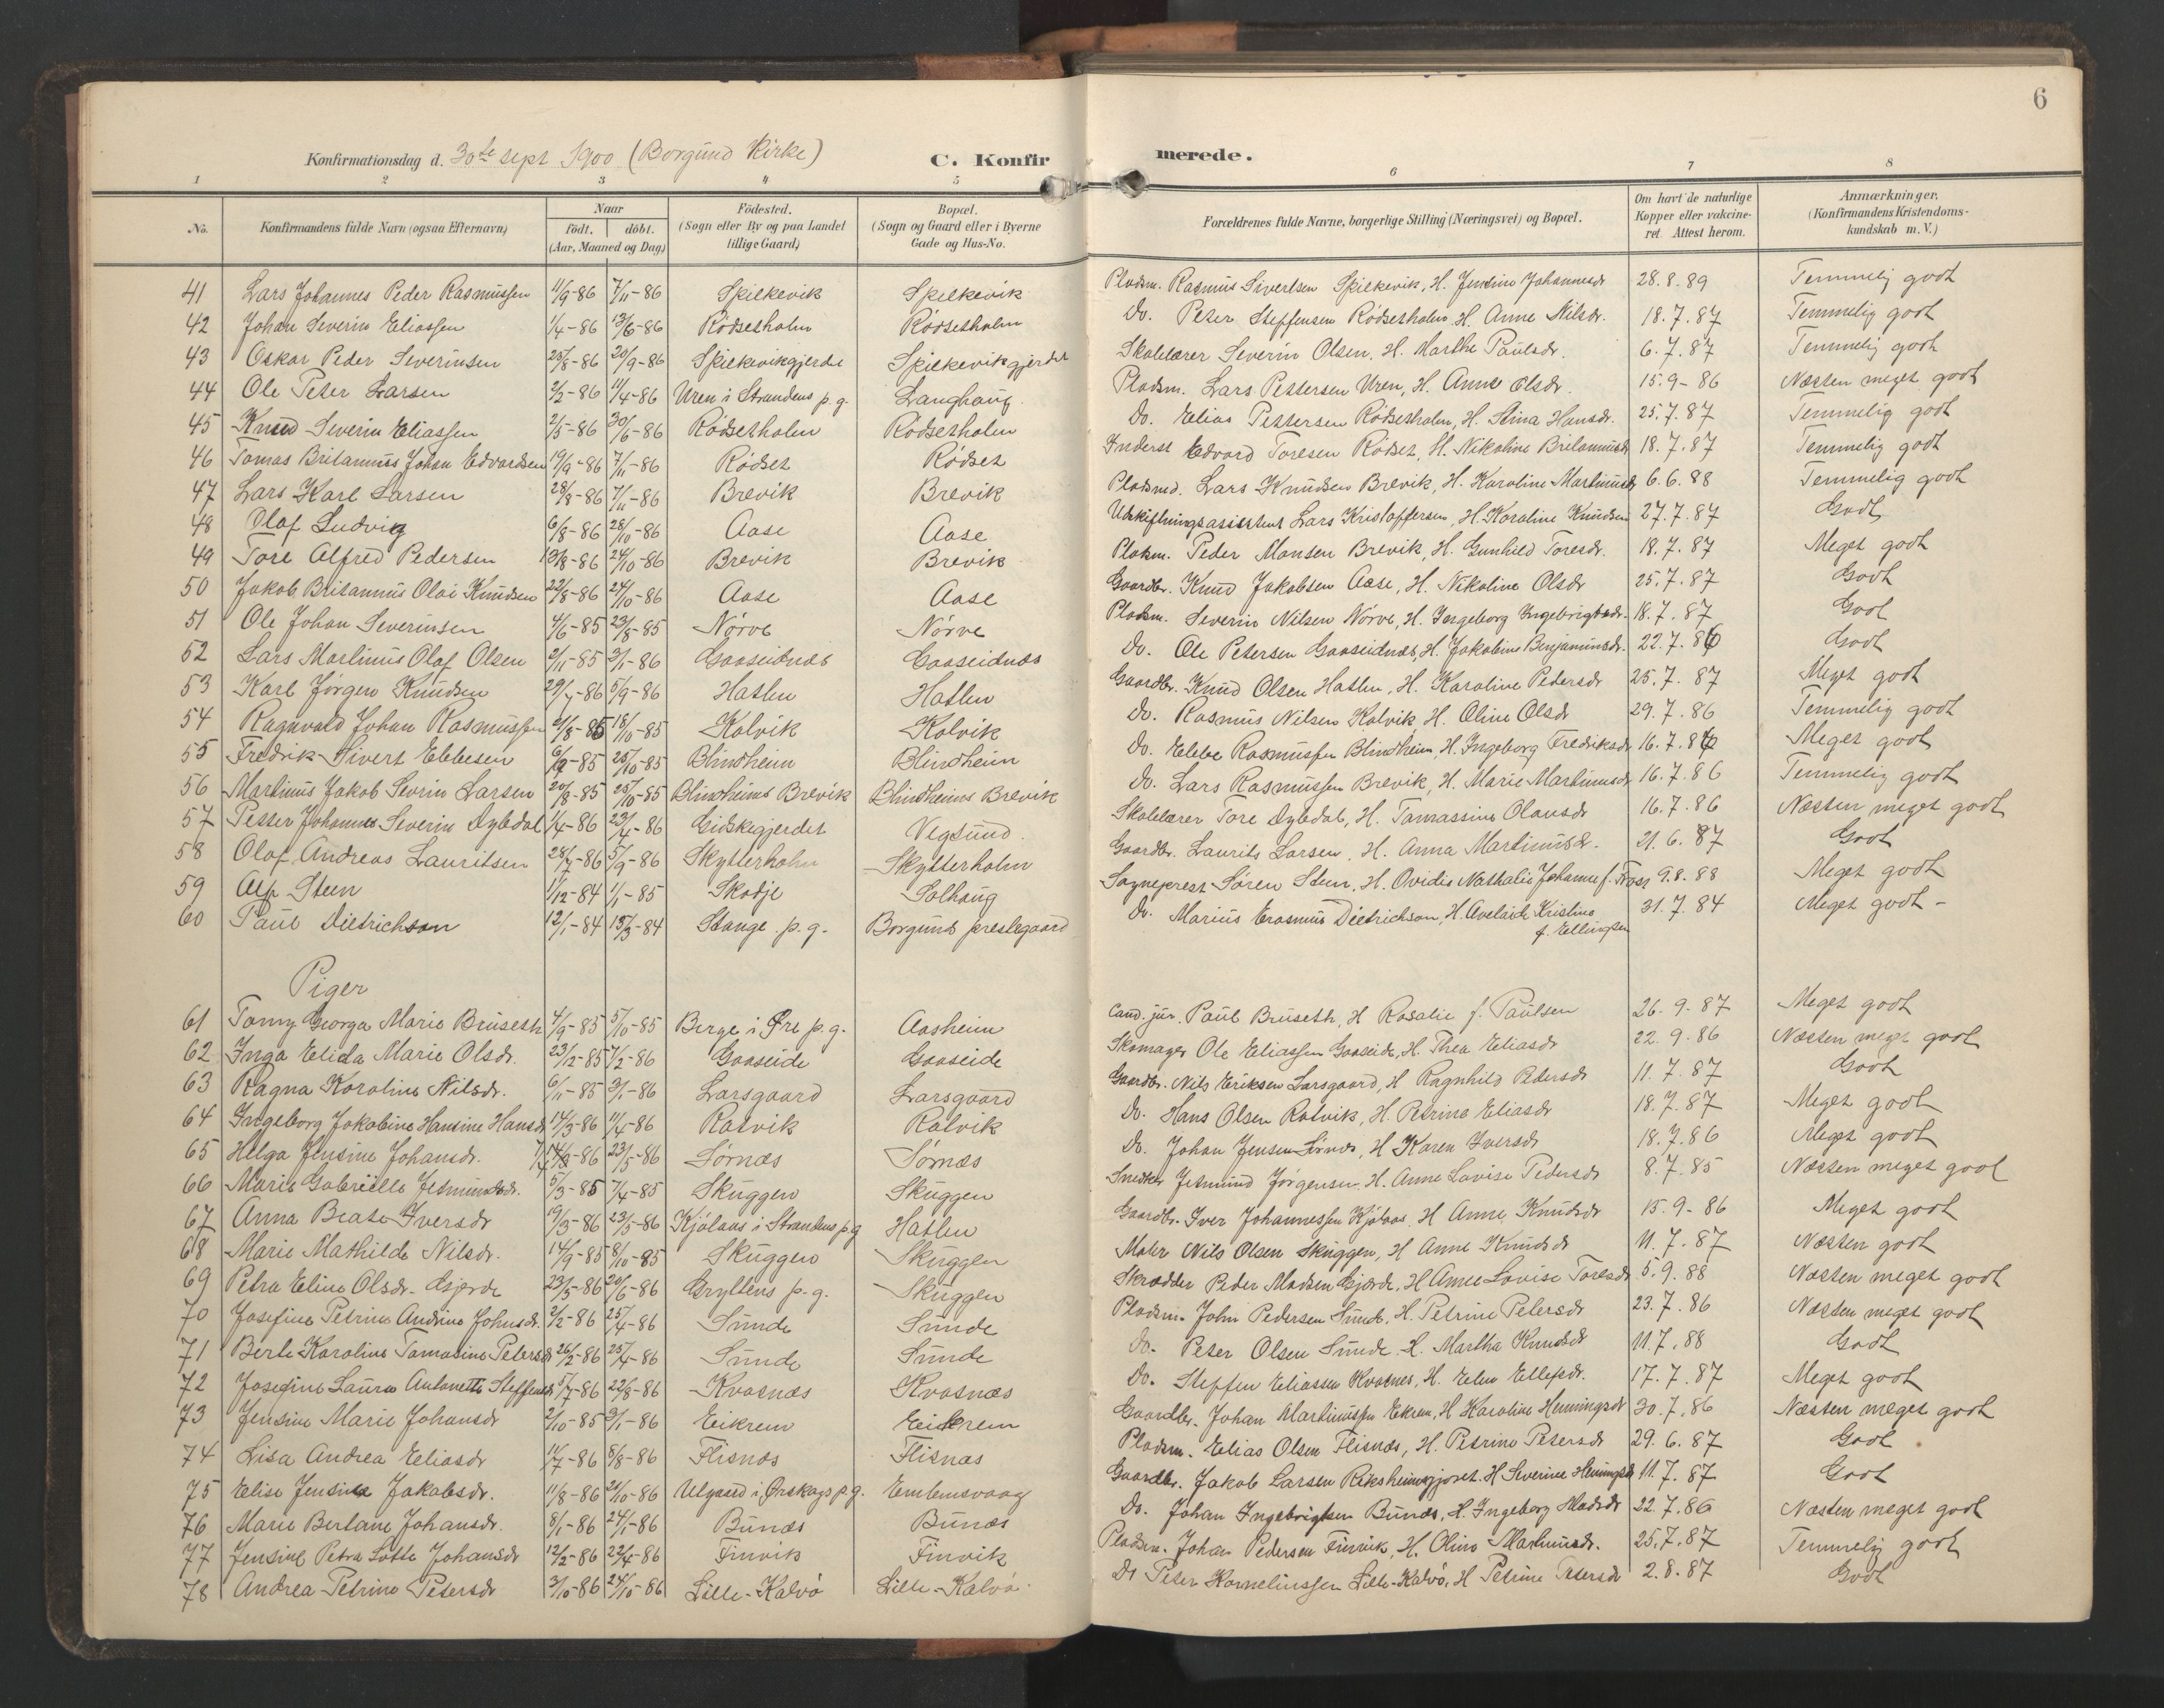 6
Konfirmationsdag d. 30te sept 1900 (Borgund Kirke) C. Konfirmerede.
1 2 3 4 5 6 7 8
No. Konfirmandens fulde Navn (ogsaa Efternavn) Naar født. døbt. (Aar, Maaned og Dag) Fødested. (Sogn eller By og paa Landet tillige Gaard) Bopæl. (Sogn og Gaard eller i Byerne Gade og Hus-No. Forældrenes fulde Navne, borgerlige Stilling (Næringsvei) og Bopæl. Om havt de naturlige Kopper eller vaccineret. Attest herom. Anmærkninger. (Konfirmandens Kristendomskundskab m. V.)
41 Lars Johannes Peder Rasmussen 11/9-86 7/11-86 Spilkevik Spilkevik Pladsm. Rasmus Sivertsen Spilkevik, H. Jensine Johannesdr 28.8.89 Temmelig godt
42 Johan Severin Eliassen 1/4-86 13/6-86 Rødsetholm Rødsetholm Do. Peter Steffensen Rødsetholm, H. Anne Nilsdr. 18.7.87 Temmelig godt
43 Oskar Peder Severinsen 25/8-86 20/9-86 Spilkevikgjerdet Spilkevikgjerdet Skolelærer Severin Olsen, H. Marthe Paulsdr. 6.7.87 Temmelig godt
44 Ole Peter Larsen 2/2-86 11/4-86 Uren i Strandens p.g. Langhaug. Pladsm. Lars Pettersen Uren, H. Anne Olsdr. 15.9-86 Næsten meget godt
45 Knud Severin Eliassen 2/5-86 30/6-86 Rødsetholm Rødsetholm Do. Elias Pettersen Rødsetholm, H. Stina Hansdr. 25.7.87 Temmelig godt
46 Tomas Britannus Johan Edvardsen 19/9-86 7/11-86 Rødset Rødset Inderst Edvard Toresen Rødset, H. Nikoline Britannusdr 18.7.87 Temmelig godt
47 Lars Karl Larsen 28/8-86 7/11-86 Brevik Brevik Pladsmd. Lars Knudsen Brevik, H. Karoline Martinusdr 6.6.88 Temmelig godt
48 Olaf Ludvig 6/8-86 28/10-86 Aase Aase Udskiftningsasistent Lars Kristoffersen, H. Karoline Knudsen 27.7.87 Godt
49 Tore Alfred Pedersen 13/8-86 24/10-86 Brevik Brevik Pladsm. Peder Monsen Brevik, H. Gunhild Toresdr. 18.7.87 Meget godt
50 Jakob Britannus Olai Knudsen 22/8-86 24/10-86 Aase Aase Gaardbr. Knud Jakobsen Aase, H. Nikoline Olsdr 25.7.87 Godt
51 Ole Johan Severinsen 4/6-85 23/8-85 Nørve Nørve Pladsm. Severin Nilsen Nørve, H. Ingeborg Ingebrigtsdr. 18.7.87 Godt
52 Lars Martinus Olaf Olsen 2/11-85 3/1-86 Gaaseidnæs Gaaseidnæs Do. Ole Petersen Gaaseidnæs, H. Jakobine Benjaminsdr. 22.7.86 Godt
53 Karl Jørgen Knudsen 29/7-86 5/9-86 Hatlen Hatlen Gaardbr. Knud Olsen Hatlen, H. Karoline Pedersdr 25.7.87 Meget godt
54 Ragnvald Johan Rasmussen 21/8-85 18/10-85 Kalvik Kalvik Do. Rasmus Nilsen Kalvik H. Oline Olsdr 29.7.86 Temmelig godt
55 Fredrik Sivert Ebbesen 6/9-85 25/10-85 Blindheim Blindheim Do. Ebbe Rasmussen Blindheim, H. Ingeborg Fredriksdr 16.7.86 Meget godt
56 Martinus Jakob Sevrin Larsen 20/8-85 25/10-85 Blindheims Brevik Blindheims Brevik Do. Lars Rasmussen Brevik, H. Marie Martinusdr 16.7.86 Temmelig godt
57 Petter Johannes Severin Dybdal 1/4-86 23/4-86 Gidskegjerdet Vegsund. Skolelærer Tore Dybdal, H. Tamassine Olausdr 16.7.86 Næsten meget godt
58 Olaf Andreas Lauritsen 28/7-86 5/9-86 Skytterholm Skytterholm Gaardbr. Laurits Larsen, H. Anna Martinusdr. 21.6.87 Godt
59 Alf Steen 1/12-84 1/1-85 Skodje Solhaug Sogneprest Søren Steen, H. Ovidia Nathalie Johanne f. 9.8.88 Meget godt
60 Paul Dietrichson 12/1-84 13/3-84 Stange p.g. Borgund prestegaard Do. Marius Erasmus Dietrichson, H. Avelaide Kristine f. Ellingsen 31.7.84 Meget godt-
Piger
61 Tomy Georga Marie Bruseth 4/9-85 5/10-85 Berge i Øre p.g. Aasheim Cand. jur. Paul Bruseth, H Rosalie f. Paulsen 26.9.87 Meget godt
62 Inga Elida Marie Olsdr. 23/12-85 7/2-86 Gaaseide Gaaseide Skomager Ole Eliassen Gaaseide, H. Thea Eliasdr 22.9.86 Næsten meget godt
63 Ragna Karoline Nilsdr. 6/11-85 3/1-86 Larsgaard Larsgaard Gaardbr. Nils Eriksen Larsgaard, H Ragnhild Pedersdr 11.7.87 Godt
64 Ingeborg Jakobine Hansine Hansdr 14/3-86 11/4-86 Ratvik Ratvik Do. Hans Olsen Ratvik, H. Petrine Eliasdr 18.7.87 Meget godt
65 Helga Jensine Johansdr. 7/4-86 23/5-86 Sørnæs Sørnæs Do. Johan Jensen Sørnæs, H Karen Iversdr 18.7.86 Meget godt
66 Marie Gabriëlle Jetmundsdr. 5/3-85 7/4-85 Skuggen Skuggen Snedker Jetmund Jørgensen H. Anne Lovise Pedersdr 8.7.85 Næsten meget godt
67 Anna Beate Iversdr 19/3-86 23/5-86 Kjølaas i Strandens p.g Hatlen Gaardbr. Iver Johannessen Kjølaas H Anne Knudsdr 15.9-86 Meget godt
68 Marie Mathilde Nilsdr. 14/9-85 8/10-85 Skuggen Skuggen Maler Nils Olsen Skuggen, H Anne Knudsdr 11.7.87 Næsten godt
69 Petra Eline Olsdr. Gjerde 23/5-86 20/6-86 Gryttens p.g. Skuggen Skrædder Peder Madsen Gjerde, H Anne Lovise Toresdr 5.9.88 Næsten meget godt
70 Josefine Petrine Andrine Johnsdr. 2/2-86 25/4-86 Sunde Sunde Pladsm. John Pedersen Sunde, H. Petrine Petersdr 23.7.86 Næsten meget godt
71 Berte Karoline Tomasine Petersdr 26/2-86 25/4-86 Sunde Sunde Do. Peter Olsen Sunde H. Martha Knudsdr 11.7.88 Godt
72 Josefine Laura Antonette Steffensdr 5/7-86 22/8-86 Kvasnæs Kvasnæs Do. Steffen Eliassen Kvasnes, H. Elen Ellefsdr. 17.7.87 Meget godt
73 Jensine Marie Johansdr 2/10-85 3/1-86 Eikrem Eikrem Gaardbr. Johan Martinussen Ekrem, H Karoline Henningsdr 30.7.86 Næsten meget godt
74 Lisa Andrea Eliasdr 11/7-86 8/8-86 Flisnæs Flisnæs Pladsm. Elias Olsen Flisnæs, H. Petrine Petersdr 29.6.87 Godt
75 Elise Jensine Jakobsdr. 11/8-86 24/10-86 Ulgaard i Ørskogs p.g. Emblemsvaag Gaardbr. Jakob Larsen Riksheimgjæret H Severine Henningsdr 11.7.87 Godt
76 Marie Bertane Johansdr. 8/1-86 24/1-86 Bunæs Bunæs Do. Johan Ingebrigtsen Bunæs, H. Ingeborg Madsdr 22.7.86 Næsten meget godt
77 Jensine Petra Lotte Johansdr 12/2-86 22/4-86 Finvik Finvik Pladsm. Johan Pedersen Finvik, H. Oline Martinusdr. 25.7.87 Temmelig godt
78 Andrea Petrine Petersdr 3/10-86 24/10-86 Lille-Kalvø Lille-Kalvø. Do Peter Kornelinssen Lille-Kalvø, H Petrine Petersdr 2.8.87 Godt